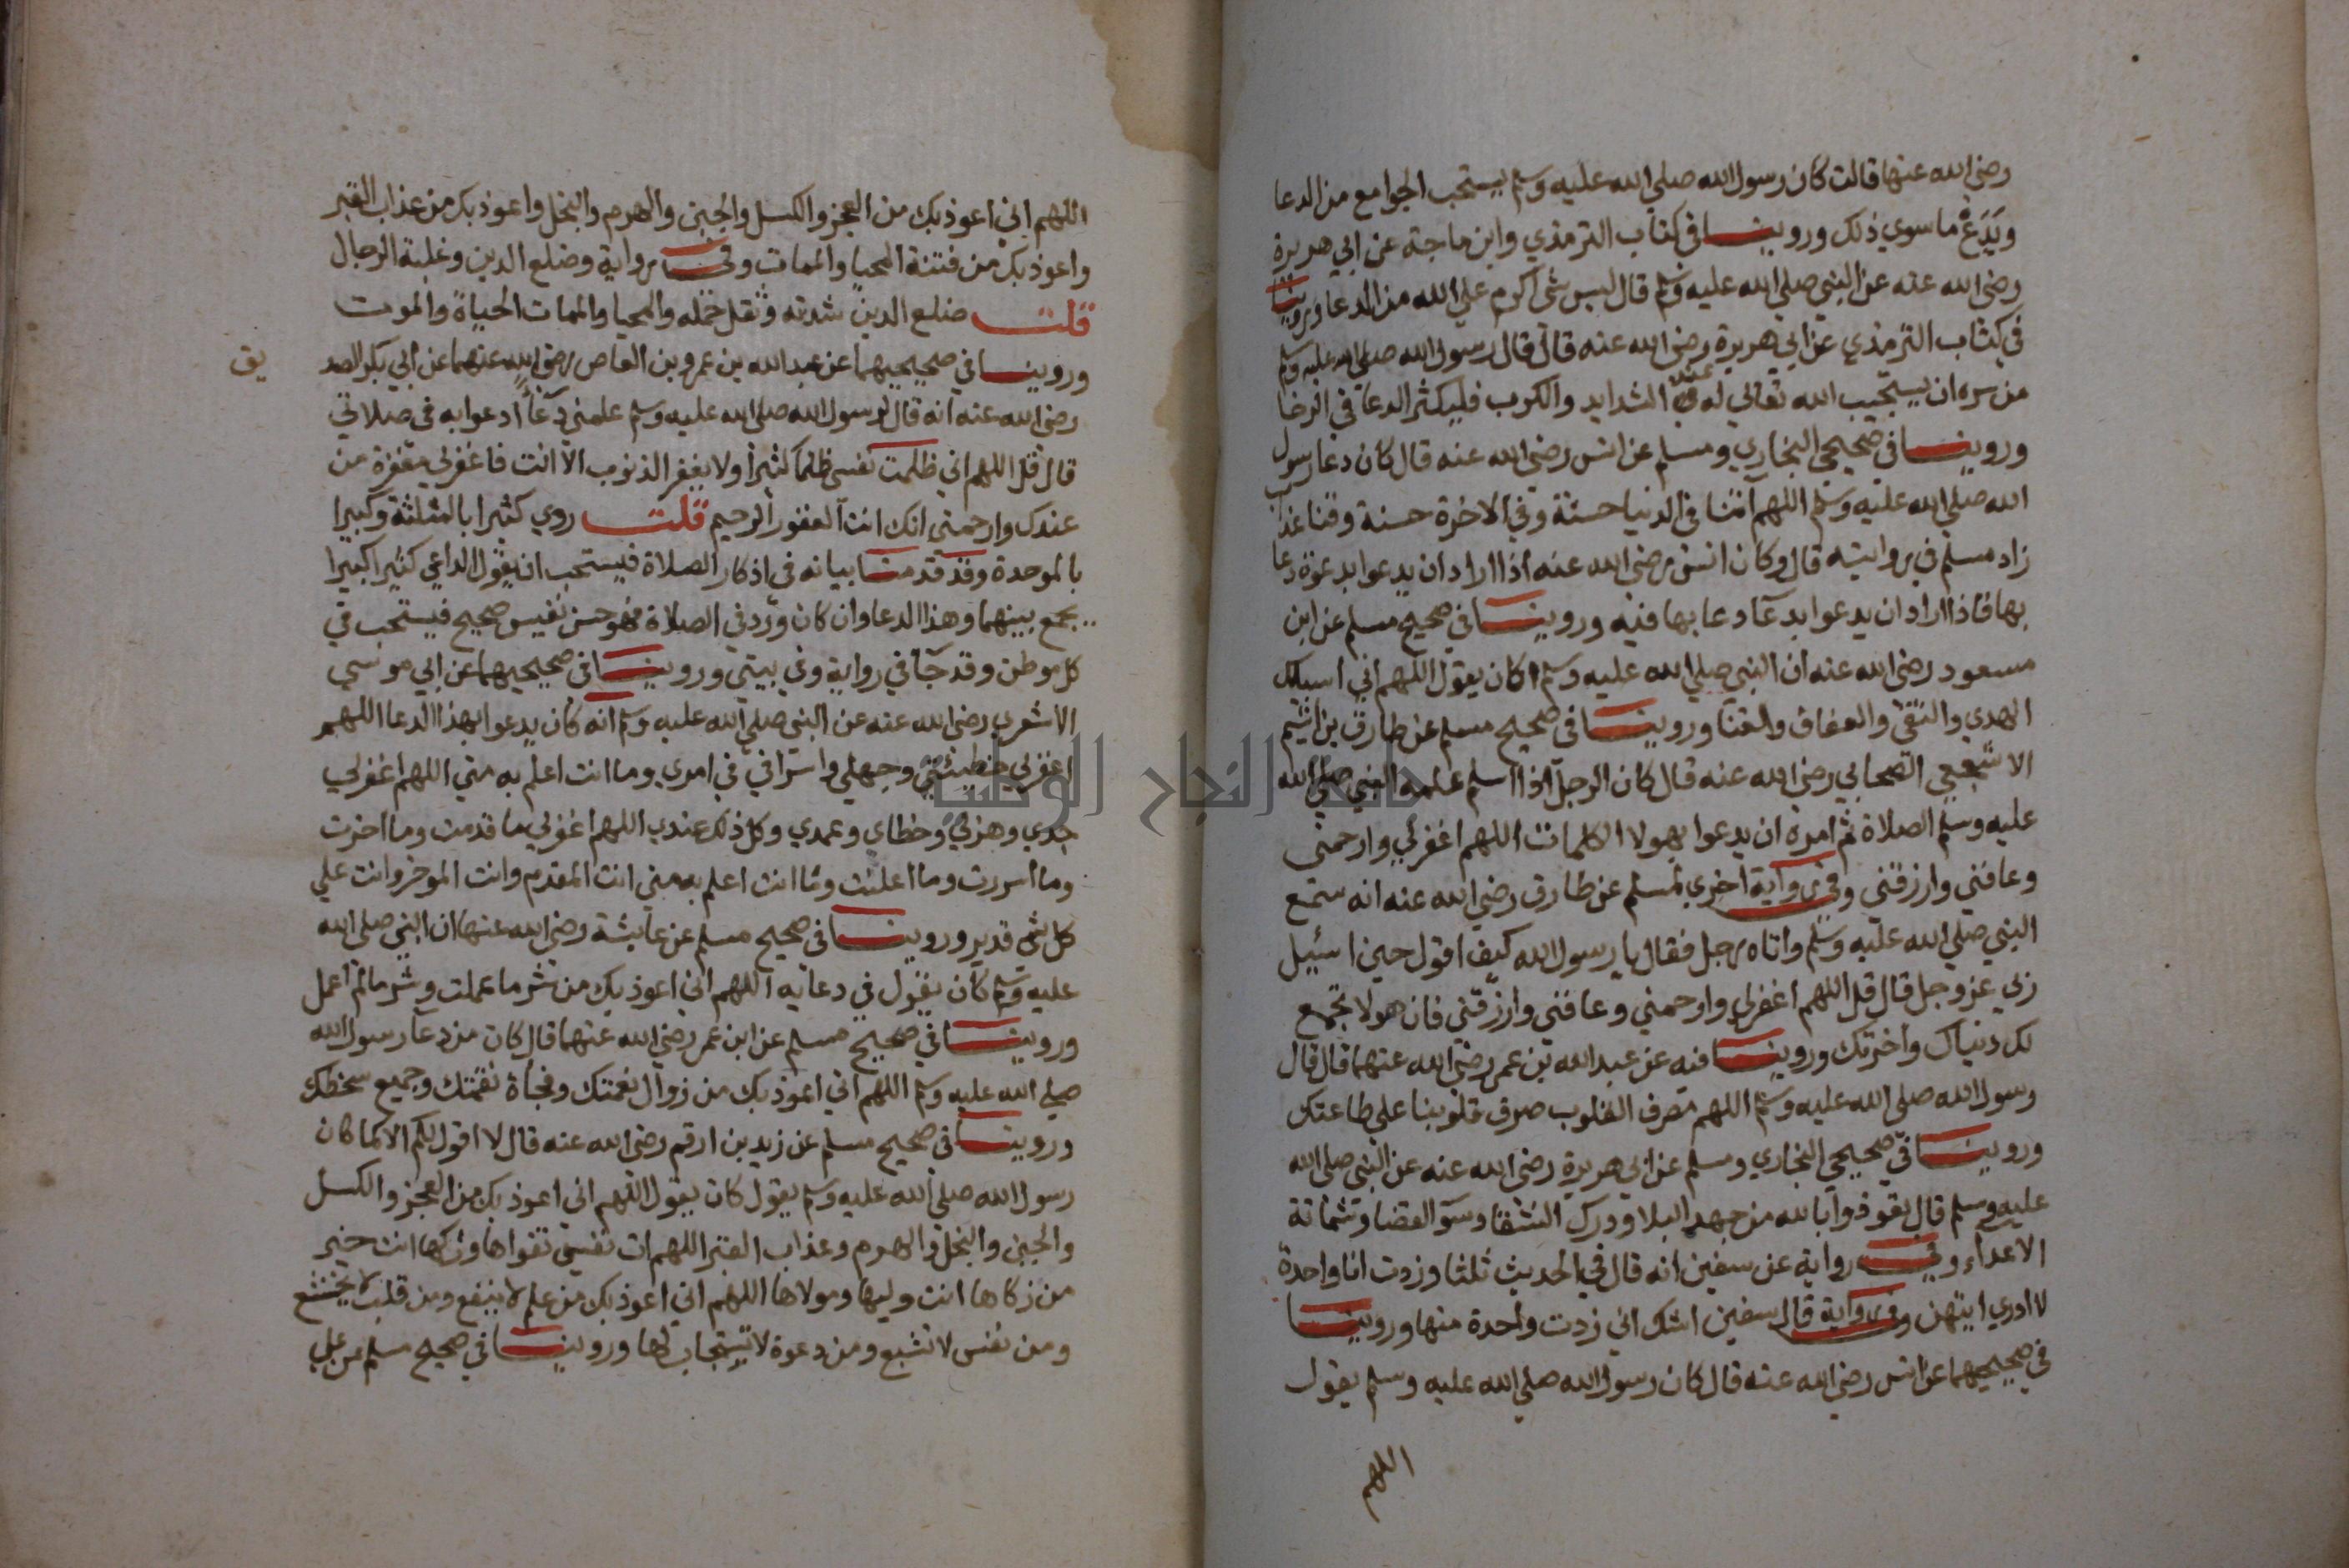 رضي الله عنها قالت كان رسول الله صلي الله عليه وسلم يستحب الجوامع من الدعا
ويَدَعُ ما سوي ذلك وروينا في كتاب الترمذي وابن ماجة عن ابي هريرة
رضي الله عنه عن النبي صلي الله عليه وسلم قال ليس شي اكرم علي الله من الدعا وروينا
في كتاب الترمذي عن ابي هريرة رضي الله عنه قال قال رسول الله صلي الله عليه وسلم
من سره ان يستجيب الله تعالي له عند الشدايد والكرب فليكثر الدعا في الرخا
وروينا في صحيحي البخاري ومسلم عن انس رضي الله عنه قال كان دعا رسول
الله صلي الله عليه وسلم اللهم آتنا في الدنيا حسنة وفي الاخرة حسنة وقنا عذاب
زاد مسلم في روايته قال وكان انس رضي الله عنه اذا اراد ان يدعوا بدعوة دعا
بها فاذا اراد ان يدعوا بدعآ دعا بها فيه وروينا في صحيح مسلم عن ابن
مسعود رضي الله عنه ان النبي صلي الله عليه وسلم كان يقول اللهم اني اسيلك
الهدي والتقي والعفاف والغنا وروينا في صحيح مسلم عن طارق بن اشيم
الاشجعي الصحابي رضي الله عنه قال كان الرجل اذا اسلم علمه النبي صلي الله
عليه وسلم الصلاة ثم امره ان يدعوا بهولا الكلمات اللهم اغفرلي وارحمني
وعافني وارزقني وفي رواية اخري لمسلم عن طارق رضي الله عنه انه سمع
النبي صلي الله عليه وسلم واتاه رجل فقال يا رسول الله كيف اقول حين اسئيل
ربي عز وجل قال قل اللهم اغفرلي وارحمني وعافني وارزقني فان هولا تجمع
لك دنياك واخرتك وروينا فيه عن عبد الله بن عمر رضي الله عنهما قال قال
رسول الله صلي الله عليه وسلم اللهم مصرف القلوب صرف قلوبنا علي طاعتك
وروينا في صحيحي البخاري ومسلم عن ابي هريرة رضي الله عنه عن النبي صلي الله
عليه وسلم قال تعوذوا بالله من جهد البلا ودرك الشقا وسو القضا وشماتة
الاعداء وفي رواية عن سفين انه قال في الحديث ثلثا وزدت انا واحدة
لا ادري ايتهن وفي رواية قال سفين اشك اني زدت واحدة منها وروينا
في صحيحيهما عن انس رضي الله عنه قال كان رسول الله صلي الله عليه وسلم يقول
اللهم
اللهم اني اعوذ بك من العجز والكسل والجبن والهرم والبخل واعوذ بك من عذاب القبر
واعوذ بك من فتنة المحيا والممات وفي رواية وضلع الدين وغلبة الرجال
قلت ضلع الدين شدته وثقل حمله والمحيا والممات الحياة والموت
وروينا في صحيحيهما عن عبد الله بن عمرو بن العاص رضي الله عنهما عن ابي بكر الصد
يق
رضي الله عنه انه قال لرسول الله صلي الله عليه وسلم علمني دعآءً ادعوا به في صلاتي
قال قل اللهم اني ظلمت نفسي ظلما كثيرا ولا يغفر الذنوب الا انت فاغفرلي مغفرة من
عندك وارحمني انك انت الغفور الرحيم قلت روي كثيرا بالمثلثة وكبيرا
بالموحدة وقد قدمنا بيانه في اذكار الصلاة فيستحب ان يقول الداعي كثيرا كبيرا
يجمع بينهما وهذا الدعا وان كان ورد في الصلاة فهو حسن نفيس صحيح فيستحب في
كل موطن وقد جآ في رواية وفي بيتي وروينا في صحيحيهما عن ابي موسي
الاشعري رضي الله عنه عن النبي صلي الله عليه وسلم انه كان يدعوا بهذا الدعا اللهم
اغفرلي خطيئتي وجهلي واسرافي في امري وما انت اعلم به مني اللهم اغفرلي
جدي وهزلي وخطاي وعمدي وكل ذلك عندي اللهم اغفرلي ما قدمت وما اخرت
وما اسررت وما اعلنت وما انت اعلم به مني انت المقدم وانت الموخر وانت علي
كل شي قدير وروينا في صحيح مسلم عن عايشة رضي الله عنها ان النبي صلي الله
عليه وسلم كان يقول في دعايه اللهم اني اعوذ بك من شر ما عملت وشر مالم اعمل
وروينا في صحيح مسلم عن ابن عمر رضي الله عنهما قال كان من دعا رسول الله
صلي الله عليه وسلم اللهم اني اعوذ بك من زوال نعمتك وفجأة نقمتك وجميع سخطك
وروينا في صحيح مسلم عن زيد بن ارقم رضي الله عنه قال لا اقول لكم الا كما كان
رسول الله صلي الله عليه وسلم يقول كان يقول اللهم اني اعوذ بك من العجز والكسل
والجبن والبخل والهرم وعذاب القبر اللهم ات نفسي تقواها وزكها انت خير
من زكاها انت وليها ومولاها اللهم اني اعوذ بك من علم لا ينفع ومن قلب لا يخشع
ومن نفس لا تشبع ومن دعوة لا يستجاب لها وروينا في صحيح مسلم عن علي
جامعة النجاح الوطنية